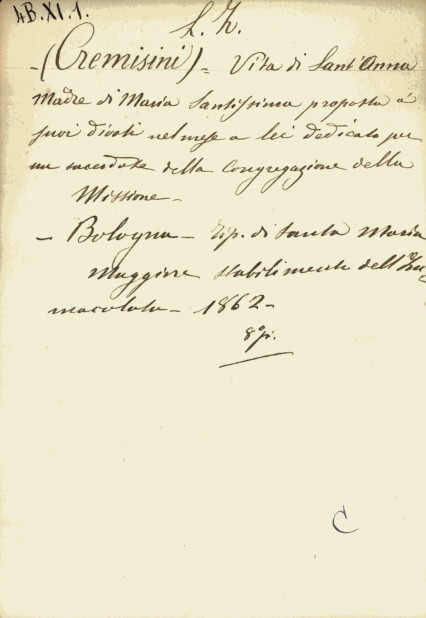 4B.XI.1.
L. Z.
-(Cremisini)= Vita di Sant'Anna
Madre di Maria Santissima proposta a'
suoi divoti nel mese a lei dedicato per
un sacerdote della Congregazione della
Missione-
- Bologna- Tip. di Santa Maria
Maggiore stabilimento dell'Im-
macolata- 1862-
8° p.
C